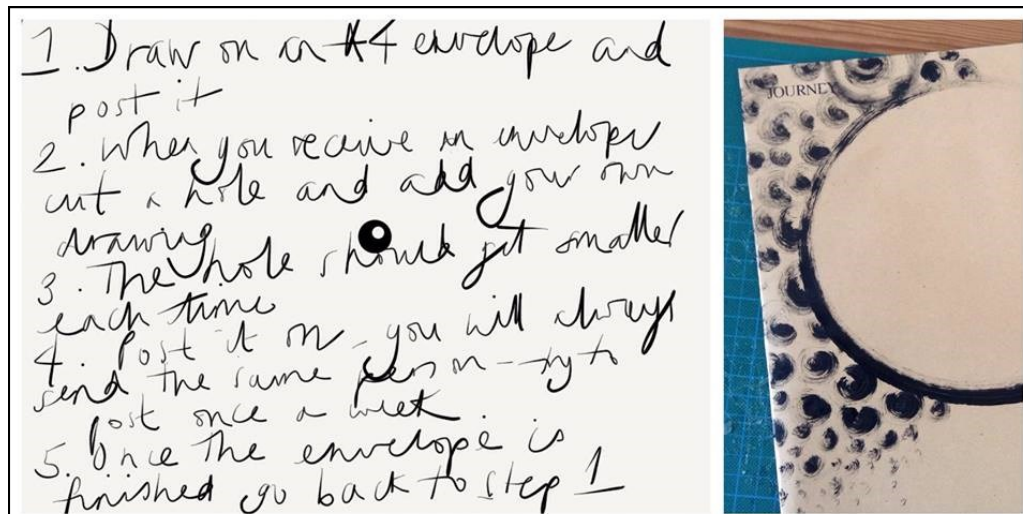 1. Draw on an A4 envelope and
post it
2. When you receive an envelope
cut a hole and add your own
drawing
3. The hole should get smaller
each time
4. Post it on - you will always
send the same person - try to
post once a week.
5. Once the envelope is
finished go back to step 1
JOURNEY